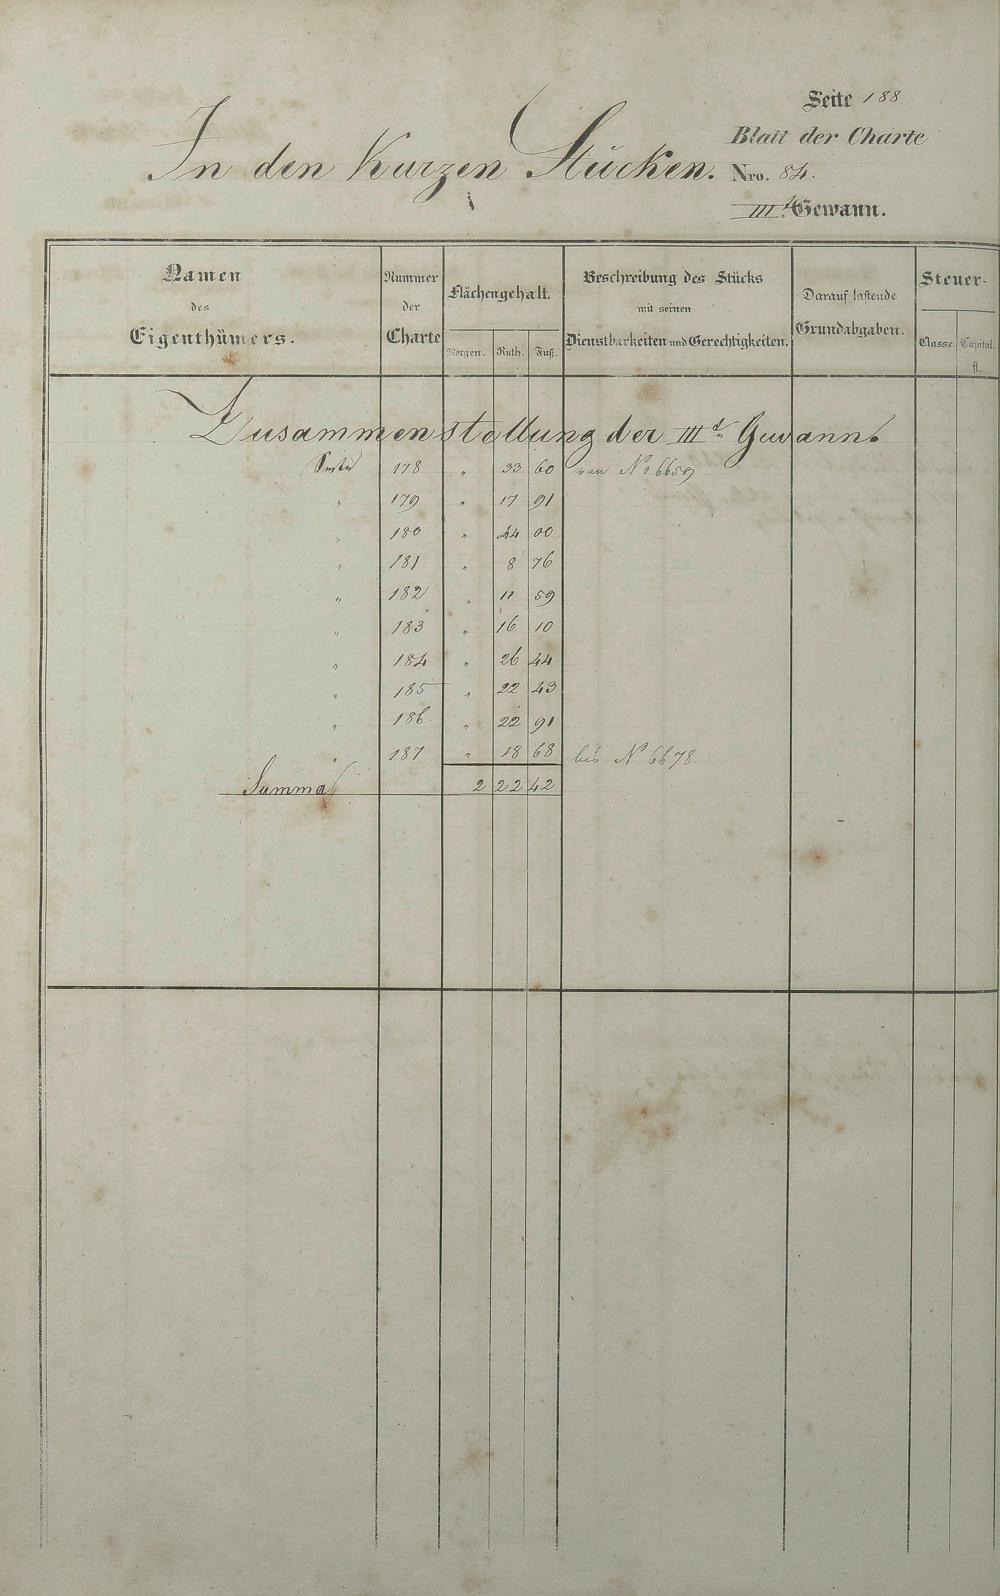 Seite 188
Blatt der Charte
In den Kurzen Stücken. Nro. 84.
III.t Gewann.
Namen des Eigenthümers.
Nummer der Charte
Flächengehalt.
Morgen. Ruth. Fuß.
Beschreibung des Stücks mit seinen Dienstbarkeiten und Gerechtigkeiten.
Darauf lastende Grundabgaben.
Steuer-
Classe. Capital. fl.
Zusammenstellung der III.t Gewann.
Seite 178 " 33 60 von No 6659
" 179 " 17 91
" 180 " 44 00
" 181 " 8 76
" 182 " 11 59
" 183 " 16 10
" 184 " 26 44
" 185 " 22 43
" 186 " 22 91
" 187 " 18 68 bis No 6678
Summa 2 22 42